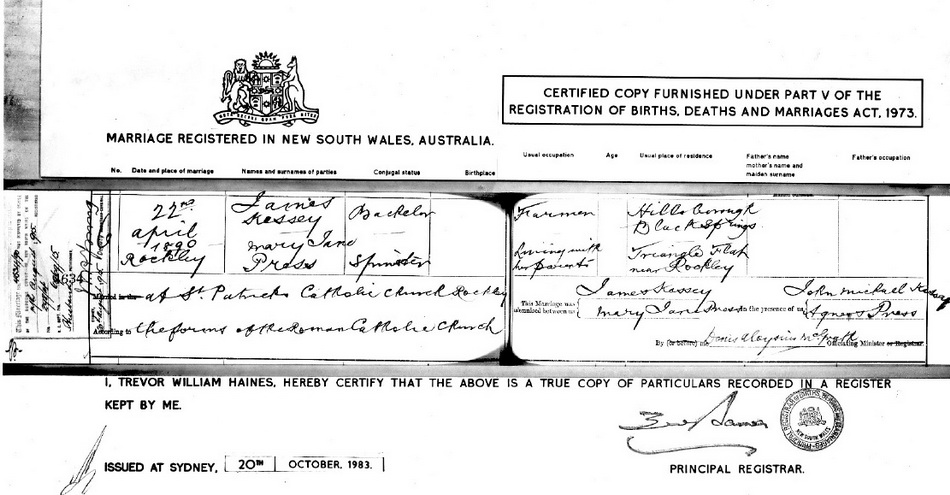 CERTIFIED COPY FURNISHED UNDER PART V OF THE
REGISTRATION OF BIRTHS, DEATHS AND MARRIAGES ACT, 1973.
MARRIAGE REGISTERED IN NEW SOUTH WALES, AUSTRALIA.
No. Date and place of marriage Names and surnames of parties Conjugal status Birthplace Usual occupation Age Usual place of residence Father's name Father's occupation
mother's name and
maiden surname
22nd James Bachelor Farmer Hillsborough
april Kessey Black Springs
1890 Mary Jane Living with Triangle Flat
Rockley Press Spinster her parents near Rockley
Married in the at St. Patricks Catholic Church Rockley
According to the forms of the Roman Catholic Church
This Marriage was James Kessey John Michael
solemnized between us Mary Jane Press in the presence of us Agness Press
By (or before) me Denis Aloysius McGrath Officiating Minister or Registrar.
I, TREVOR WILLIAM HAINES, HEREBY CERTIFY THAT THE ABOVE IS A TRUE COPY OF PARTICULARS RECORDED IN A REGISTER
KEPT BY ME.
ISSUED AT SYDNEY, 20TH OCTOBER, 1983.
PRINCIPAL REGISTRAR.